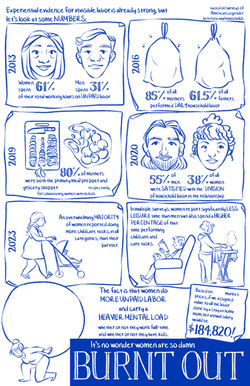 Experiential evidence for invisible labor is already strong, but
let's look at some NUMBERS.
based on surveys of
American cisgender
heterosexual households
2013
Women
spent 61%
Men
spent 31%
of their total working hours on UNPAID labor
2016
85% of all
mothers
61.5% of all
fathers
performed DAILY household labor
2019
80% of mothers
were both the primary meal preparer and
grocery shopper
2020
55% of
men
38% of
women
were SATISFIED with the DIVISION
of household labor in the relationship
2023
An overwhelming MAJORITY
of women reported doing
more childcare tasks, in all
categories, than their
In multiple surveys, women report significantly LESS
LEISURE time than men and also spend a HIGHER
PERCENTAGE of that
time performing
childcare and
care tasks
The fact is that women do
MORE UNPAID LABOR
and carry a
HEAVIER MENTAL LOAD
whether or not they work full-time
and whether or not they have kids.
Based on
prices, if we assigned
value to all the labor
done by a stay at home
mom, her annual salary
would be
$184,820!
It's no wonder women are so damn
BURNT OUT